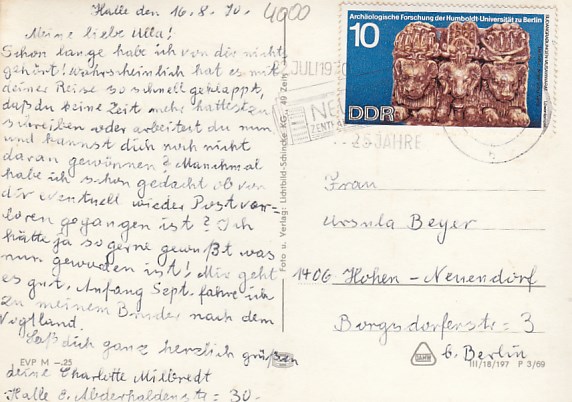 Halle den 16.8.70.
4000
Meine liebe Ulla!
Schon lange habe ich von dir nichts
gehört! Wahrscheinlich hat es mit
deiner Reise so schnell geklappt,
daß du keine Zeit mehr hattest zu
schreiben oder arbeitest du nun
und kannst dich noch nicht
daran gewöhnen? Manchmal
habe ich schon gedacht ob von
dir eventuell wieder Post ver-
loren gegangen ist? Ich
hätte ja so gerne gewußt was
nun geworden ist! Mir geht
es gut. Anfang Sept. fahre ich
zu meinem Bruder nach dem
Vogtland.
Laß dich ganz herzlich grüßen
deine Charlotte Milbredt
Halle 8, Abderhaldenstr = 30.
EVP M -.25
Foto u. Verlag: Lichtbild-Schincke KG., 49 Zeitz
Archäologische Forschung der Humboldt-Universität zu Berlin
10
DDR
25 JAHRE
Frau
Ursula Beyer
1406 Hohen-Neuendorf
Borgsdorferstr = 3
b. Berlin
III/18/197 P 3/69